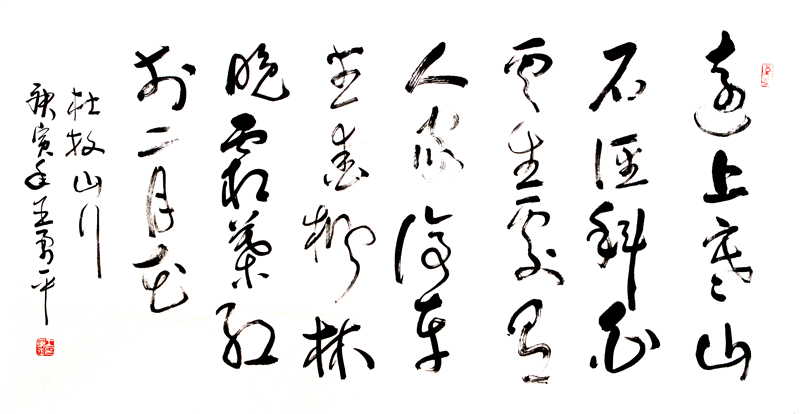 遠上寒山
石徑斜白
雲生處有
人家停車
坐愛楓林
晚霜葉紅
於二月花
杜牧山行
庚寅年王勇平